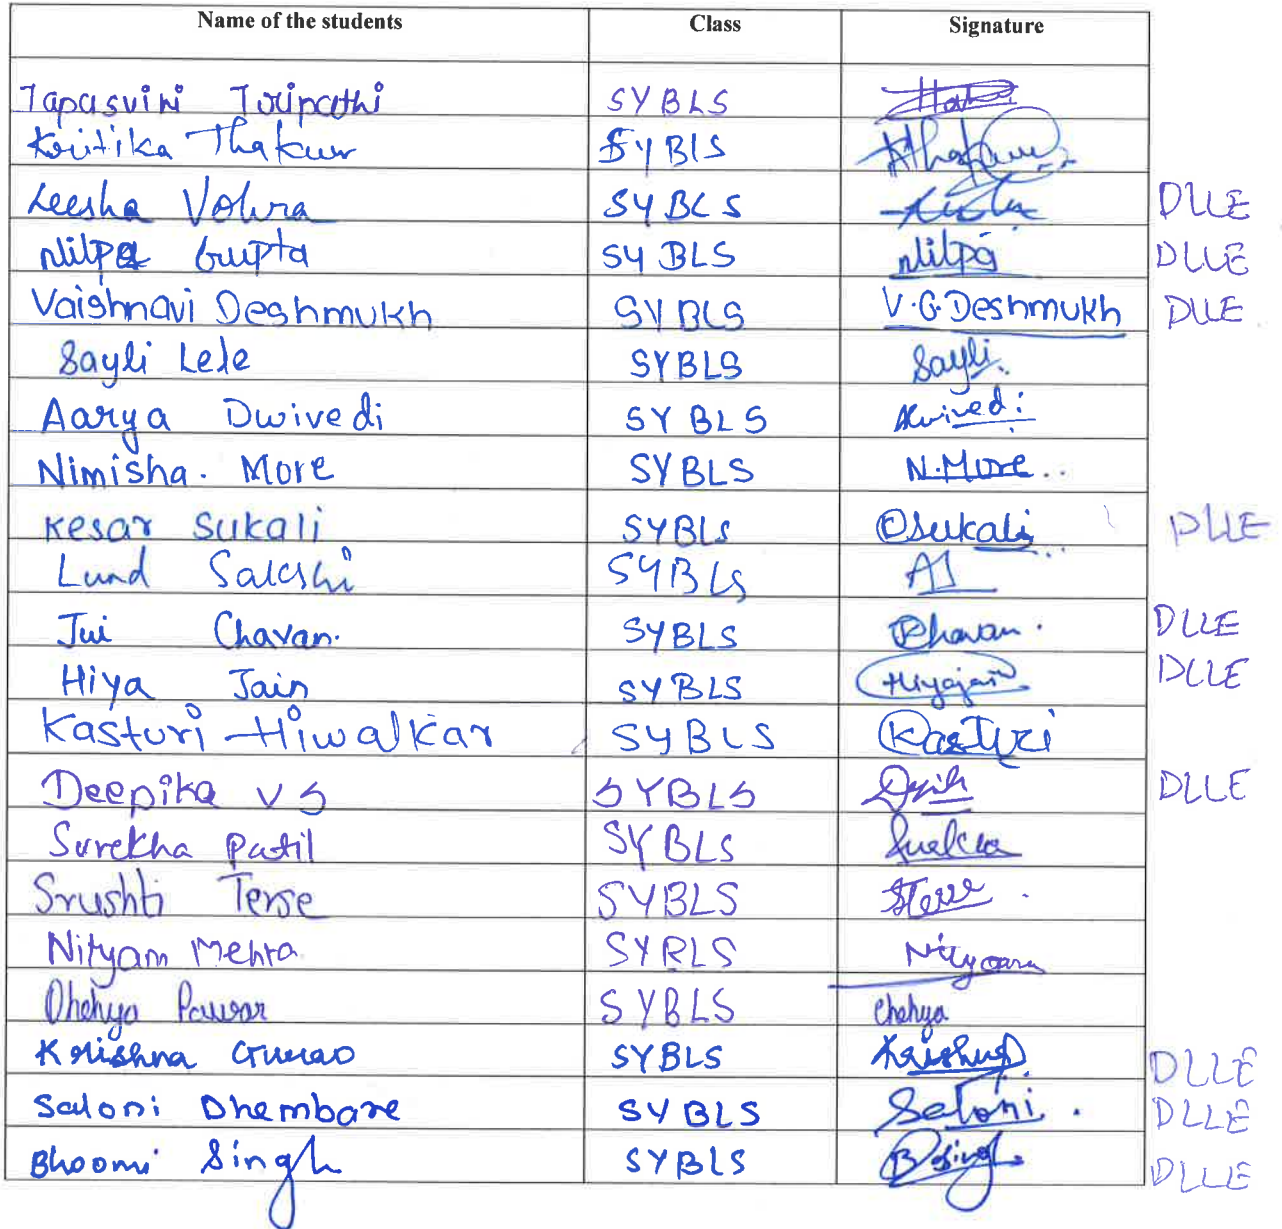 Name of the students Class Signature
Tapasvini Tripathi SYBLS
Kritika Thakur SYBLS Thakur
Leesha Vohra SYBLS DLLE
Nilpa Gupta SYBLS Nilpa DLLE
Vaishnavi Deshmukh SYBLS V.G.Deshmukh DLLE
Sayli Lele SYBLS Sayli
Aarya Dwivedi SYBLS Dwivedi
Nimisha. More SYBLS N.More
Kesar Sukali SYBLS Sukali DLLE
Lund Sakshi SYBLS
Jui Chavan. SYBLS Chavan. DLLE
Hiya Jain SYBLS Hiyajain DLLE
Kasturi Hiwalkar SYBLS Kasturi
Deepika V S SYBLS DLLE
Surekha Patil SYBLS
Srushti Terse SYBLS
Nityam Mehta SYBLS Nityam
Pawar SYBLS
Krishna Gurao SYBLS Krishna DLLE
Saloni Dhembare SYBLS Saloni. DLLE
Bhoomi Singh SYBLS BSingh DLLE